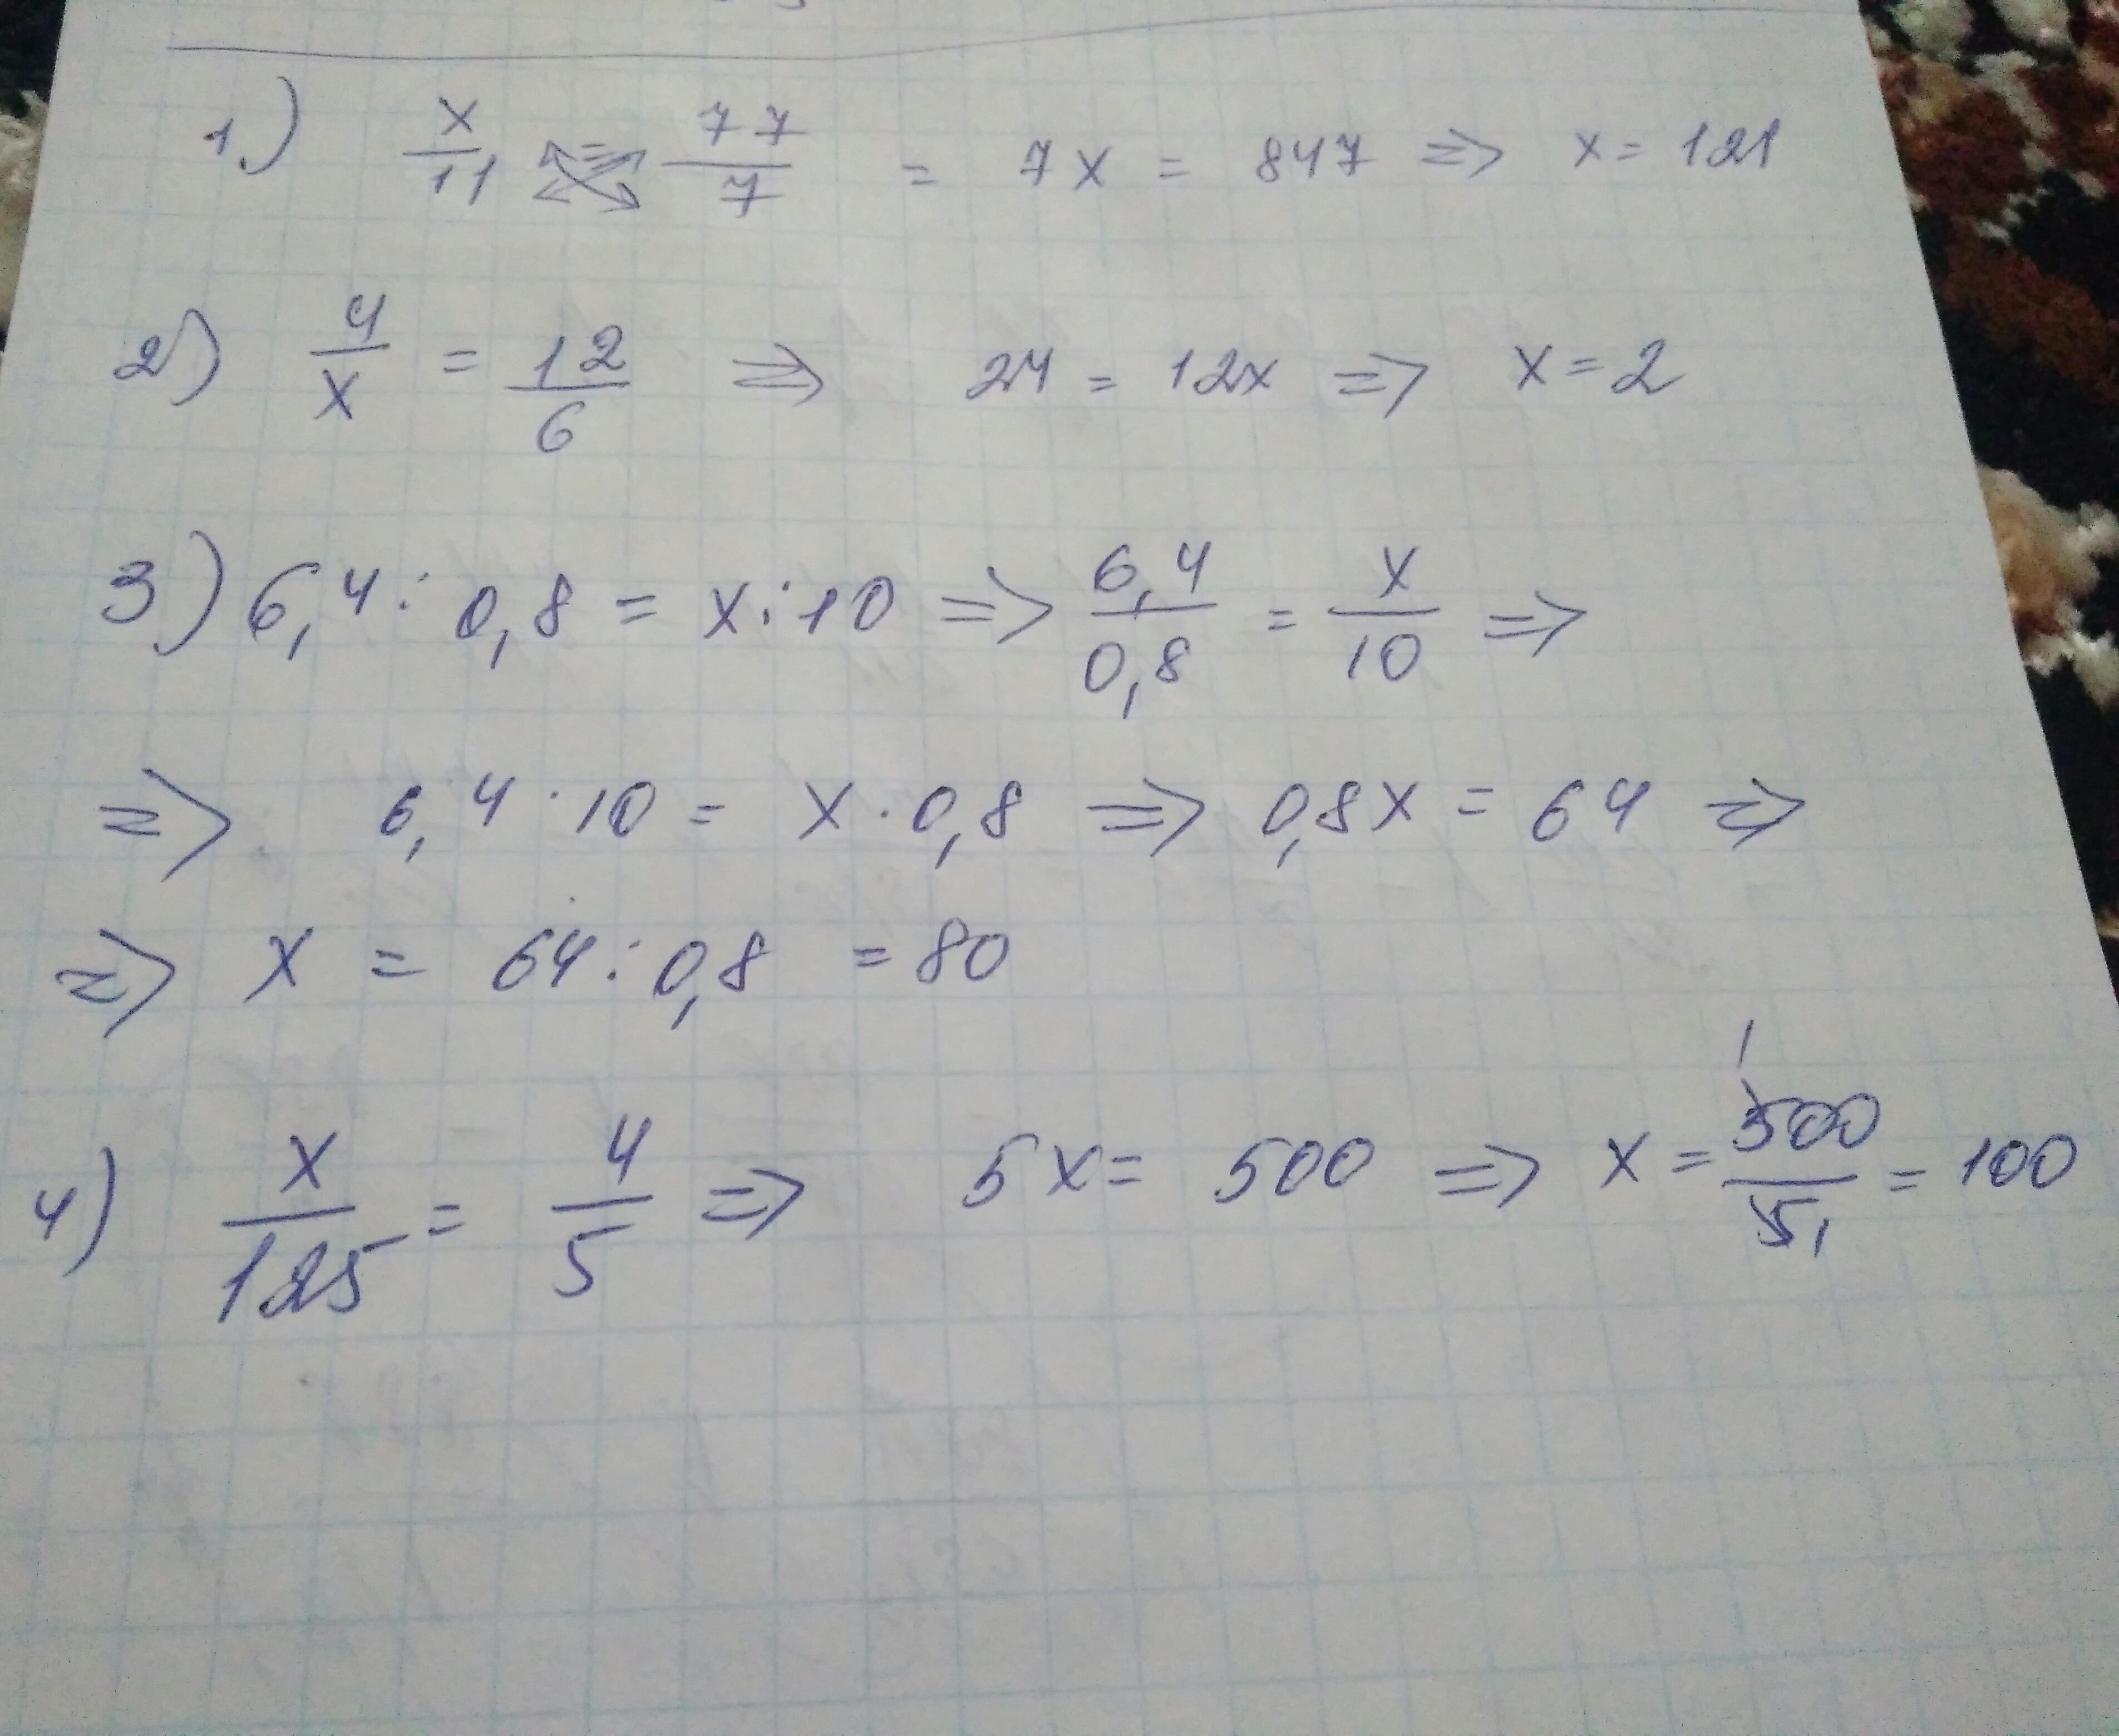 1.) x/11 = 77/7 = 7x = 847 => x = 121
2) 4/x = 12/6 => 24 = 12x => x = 2
3) 6,4 : 0,8 = x : 10 => 6,4/0,8 = x/10 =>
=> 6,4 · 10 = x · 0,8 => 0,8x = 64 =>
=> x = 64 : 0,8 = 80
4) x/125 = 4/5 => 5x = 500 => x = 500/5 = 100